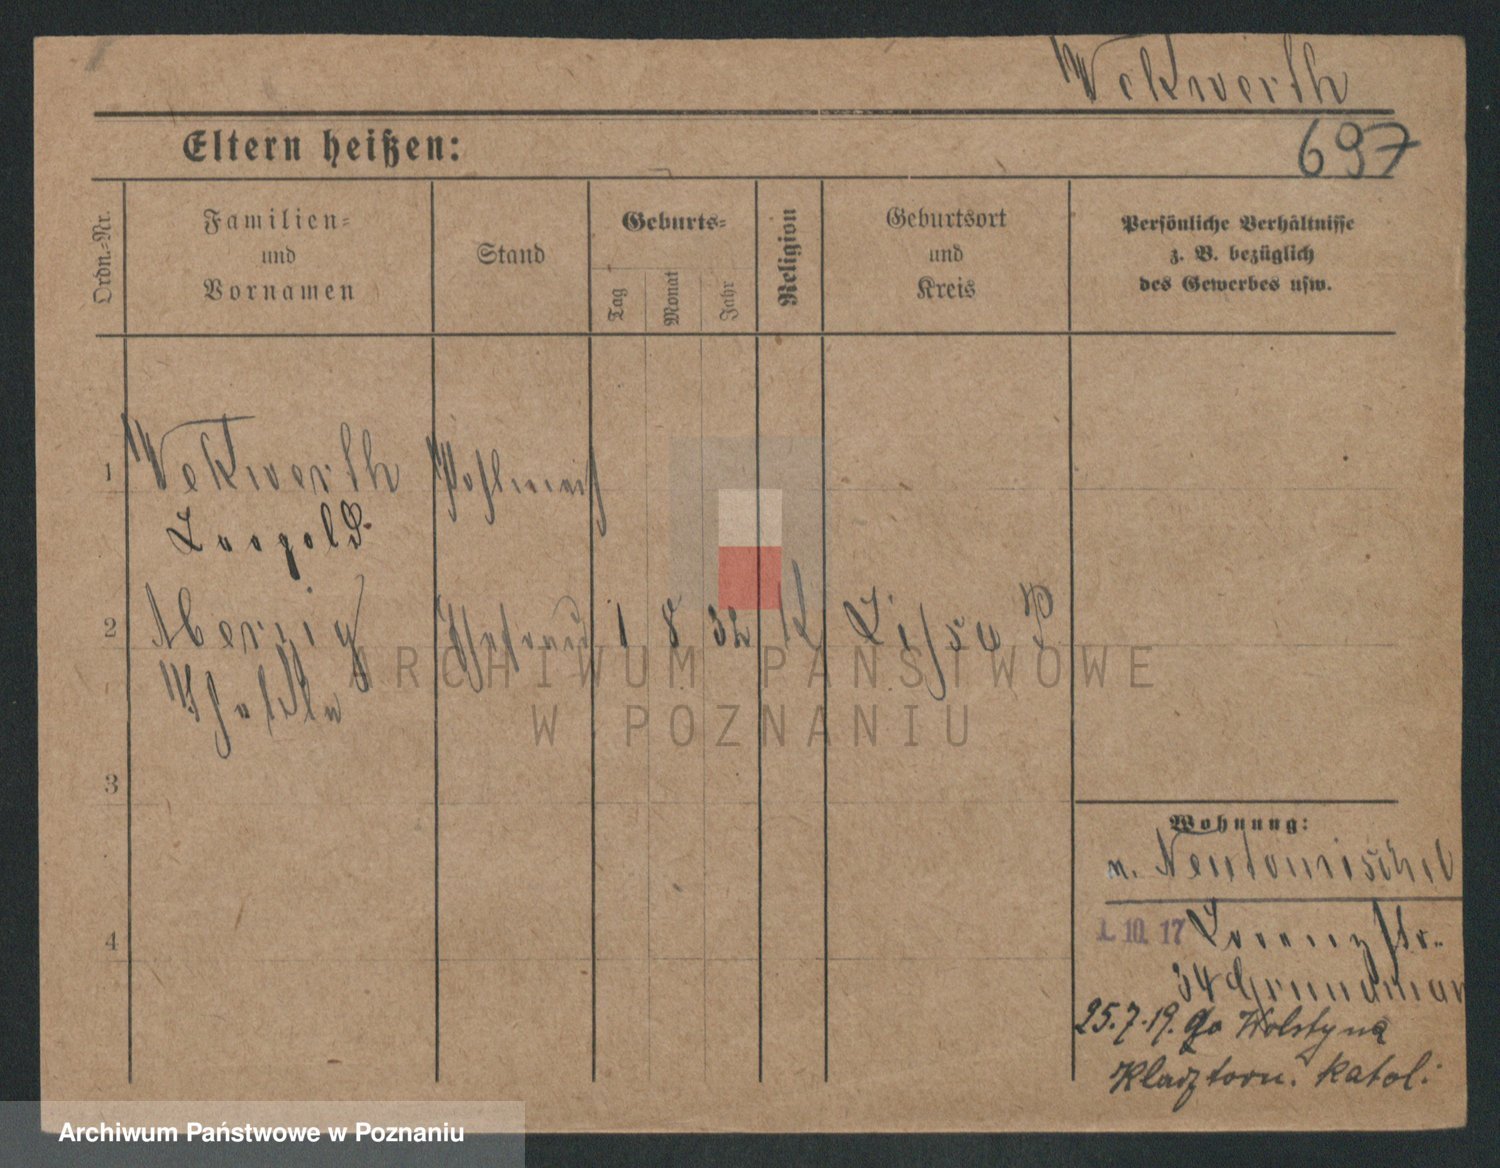 Wekwerth
Eltern heißen:
697
Ordn.-Nr.
Familien-
und
Vornamen
Stand
Geburts-
Tag
Monat
Jahr
Religion
Geburtsort
und
Kreis
Persönliche Verhältnisse
z. B. bezüglich
des Gewerbes usw.
1 Wekwerth
Leopold
2 1 8 32 K Lissa P
3
Wohnung:
n. Neutomischel
4
1. 10. 17 Lorenzstr.
34
25.7.19. do Wolsztyna
Klasztorn. katol.
ARCHIWUM PAŃSTWOWE
W POZNANIU
Archiwum Państwowe w Poznaniu